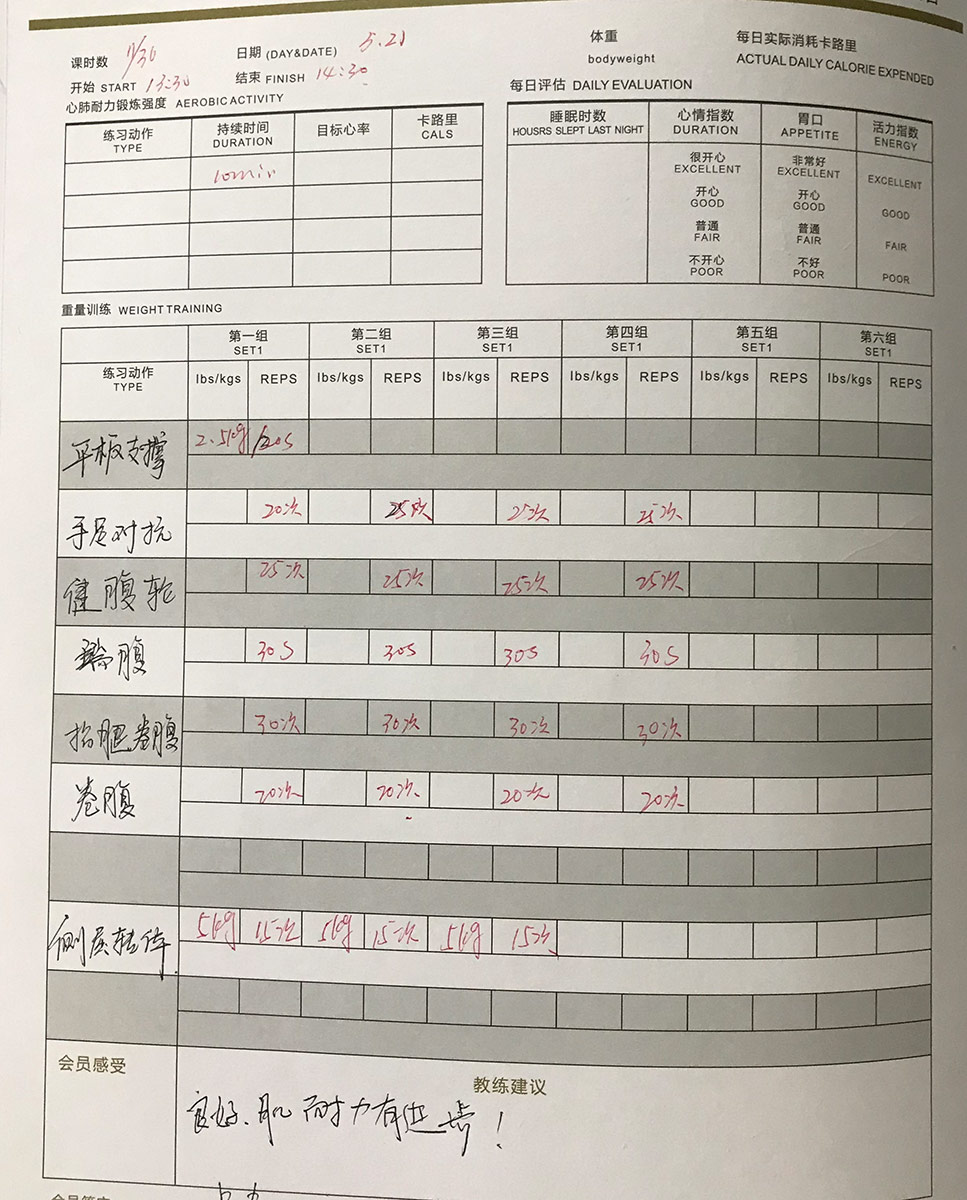 课时数 11/36 日期 (DAY&DATE) 5.21 体重 bodyweight 每日实际消耗卡路里 ACTUAL DAILY CALORIE EXPENDED
开始 START 13:30 结束 FINISH 14:30
心肺耐力锻炼强度 AEROBIC ACTIVITY 每日评估 DAILY EVALUATION
练习动作 TYPE 持续时间 DURATION 目标心率 卡路里 CALS
10min
睡眠时数 HOUSRS SLEPT LAST NIGHT 心情指数 DURATION 胃口 APPETITE 活力指数 ENERGY
很开心 EXCELLENT 非常好 EXCELLENT EXCELLENT
开心 GOOD 开心 GOOD GOOD
普通 FAIR 普通 FAIR FAIR
不开心 POOR 不好 POOR POOR
重量训练 WEIGHT TRAINING
第一组 SET1 第二组 SET1 第三组 SET1 第四组 SET1 第五组 SET1 第六组 SET1
练习动作 TYPE lbs/kgs REPS lbs/kgs REPS lbs/kgs REPS lbs/kgs REPS lbs/kgs REPS lbs/kgs REPS
平板支撑 2.5kg
手足对抗 20次 25次 25次 25次
健腹轮 25次 25次 25次 25次
腹 30S 30S 30S 30S
抬腿卷腹 30次 30次 30次 30次
卷腹 20次 20次 20次 20次
侧屈转体 5kg 15次 5kg 15次 5kg 15次
会员感受 教练建议
良好.肌耐力有进步!